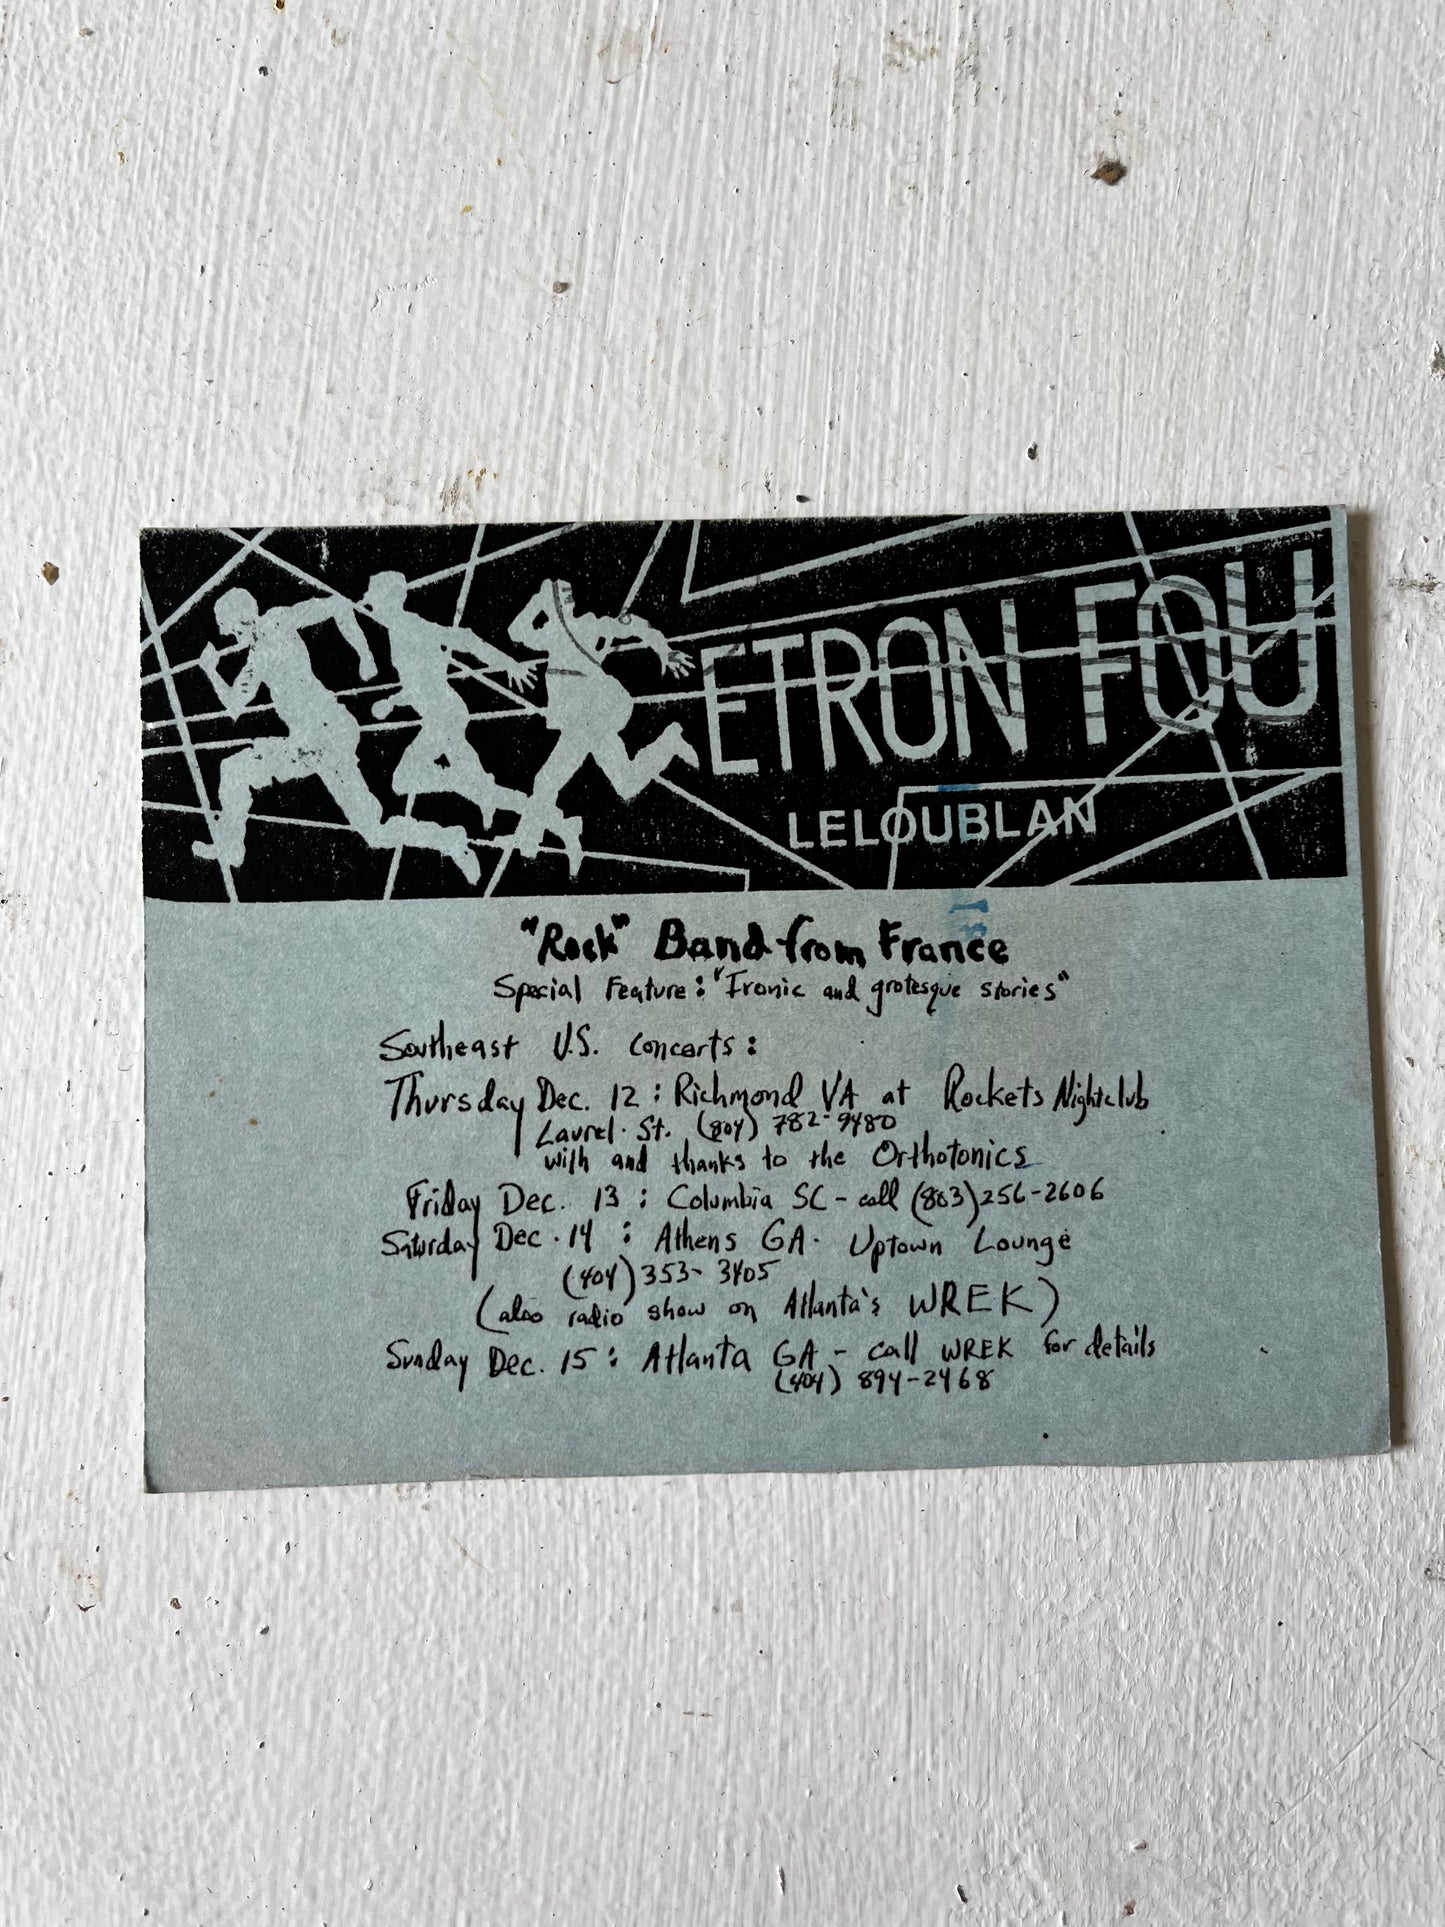 ETRON FOU
LELOUBLAN
"Rock" Band from France
Special Feature: "Ironic and grotesque stories"
Southeast U.S. Concerts:
Thursday Dec. 12 : Richmond VA at Rockets Nightclub
Laurel. St. (804) 782-9480
with and thanks to the Orthotonics
Friday Dec. 13 : Columbia SC - call (803) 256-2606
Saturday Dec. 14 : Athens GA. Uptown Lounge
(404) 353-3405
(also radio show on Atlanta's WREK)
Sunday Dec. 15 : Atlanta GA - call WREK for details
(404) 894-2468